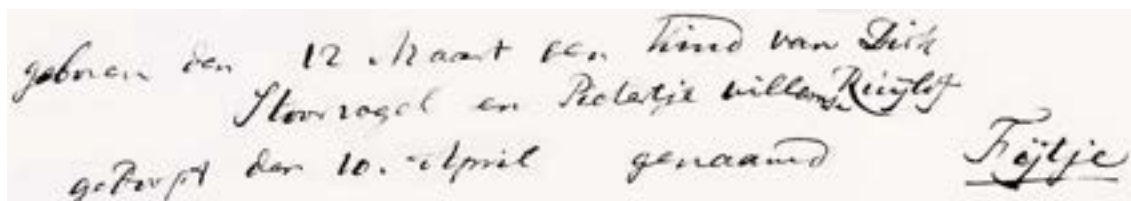 geboren den 12 Maart een kind van Dirk
Stoorvogel en Pietertje willems Ruijlof
gedoopt den 10. April genaamd Fijtje